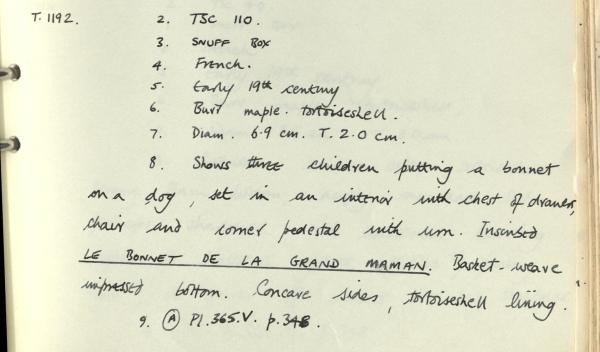 T. 1192. 2. TSC 110.
3. SNUFF BOX
4. French.
5. Early 19th century
6. Burr maple. tortoiseshell.
7. Diam. 6.9 cm. T. 2.0 cm.
8. Shows three children putting a bonnet
on a dog, set in an interior with chest of drawers,
chair and corner pedestal with urn. Inscribed
LE BONNET DE LA GRAND MAMAN. Basket-weave
impressed bottom. Concave sides, tortoiseshell lining.
9. A Pl. 365.V. p.348.